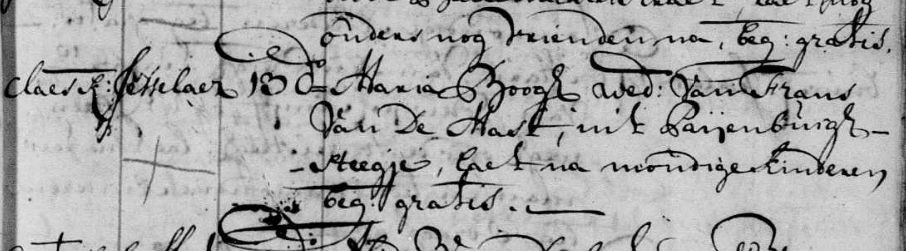 ouders nog vrienden na, beg: gratis.
Claes R: Jesselaer 13 do= Maria Boogh wed: van Frans
van De Mast, uit Paijenburgh-
-steegje, laet na mondige kinderen
beg: gratis.